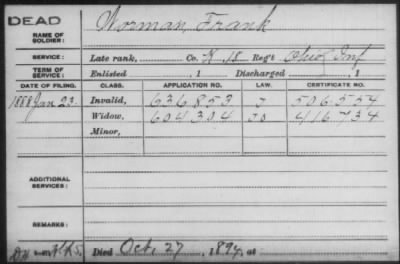 DEAD
NAME OF SOLDIER: Norman, Frank
SERVICE: Late rank, Co. K 18 Reg't Ohio Inf
TERM OF SERVICE: Enlisted , 1 Discharged , 1
DATE OF FILING. CLASS. APPLICATION NO. LAW. CERTIFICATE NO.
1888 Jan 23. Invalid, 636.853 J 506.554
Widow, 604304 JD 416.734
Minor,
ADDITIONAL SERVICES:
REMARKS:
Died Oct. 27, 1894, at